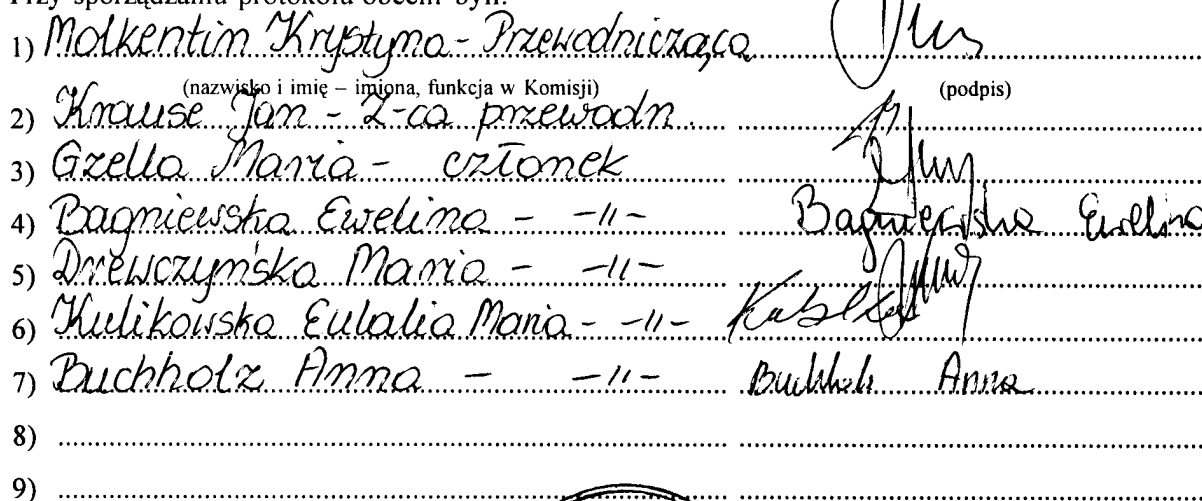 Przy sporządzaniu protokołu obecni byli:
1) Molkentim Krystyna - Przewodnicząca
(nazwisko i imię – imiona, funkcja w Komisji) (podpis)
2) Krause Jan - Z-ca przewodn.
3) Gzella Maria - członek
4) Bagniewska Ewelina - -//- Bagniewska Ewelina
5) Drewczyńska Maria - -//-
6) Kulikowska Eulalia Maria - -//-
7) Buchholz Anna - -//- Buchholz Anna
8)
9)